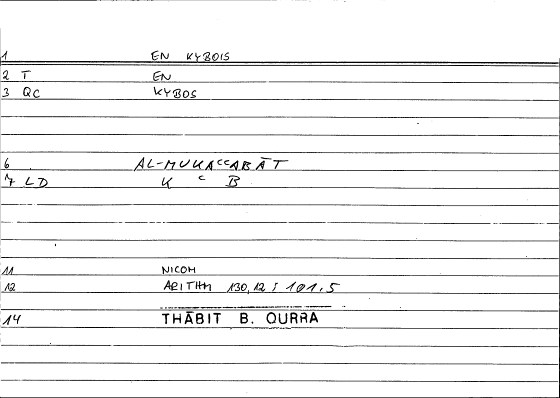 1 EN KYBOIS
2 T EN
3 QC KYBOS
6 AL-MUKAᶜᶜABĀT
7 LD K ᶜ B
11 NICOM
12 ARITHM 130,12 ; 101.5
14 THĀBIT B. QURRA